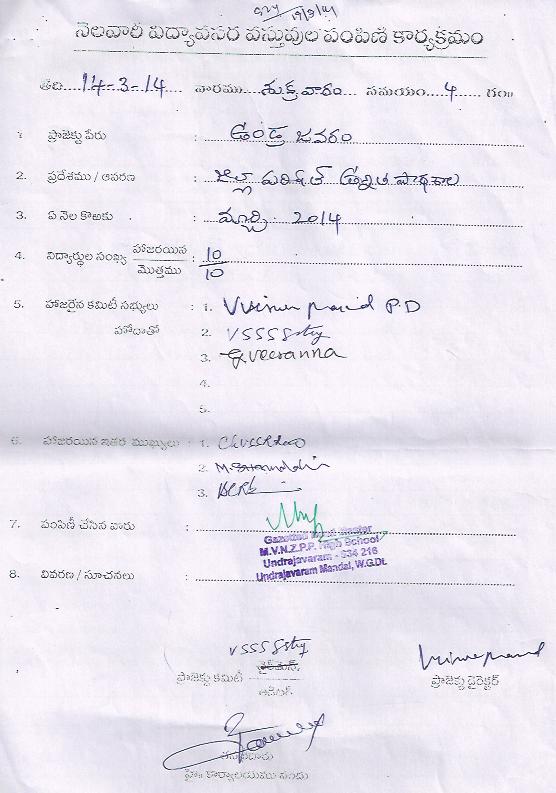 19/3/14
నెలవారి విద్యావసర వస్తువుల పంపిణి కార్యక్రమం
తేది....14-3-14.... వారము....శుక్రవారం.... సమయం....4.... గం॥
1. ప్రాజెక్టు పేరు : ఉండ్రాజవరం
2. ప్రదేశము / ఆవరణ : జిల్లా పరిషత్ ఉన్నత పాఠశాల
3. ఏ నెల కొఱకు : మార్చి 2014
4. విద్యార్థుల సంఖ్య హాజరయిన / మొత్తము : 10 / 10
5. హాజరైన కమిటీ సభ్యులు : 1. P.D
హోదాతో 2. VSSS Sstry
3. G. Veeranna
4.
5.
6. హాజరయిన ఇతర ముఖ్యులు : 1.
2.
3.
7. పంపిణీ చేసిన వారు :
Gazetted Head Master
M.V.N.Z.P.P. High School
Undrajavaram - 534 216
Undrajavaram Mandal, W.G.Dt.
8. వివరణ / సూచనలు :
VSSS Sstry
ప్రాజెక్టు కమిటీ
ప్రాజెక్టు డైరెక్టర్
హైః కార్యాలయము నందు